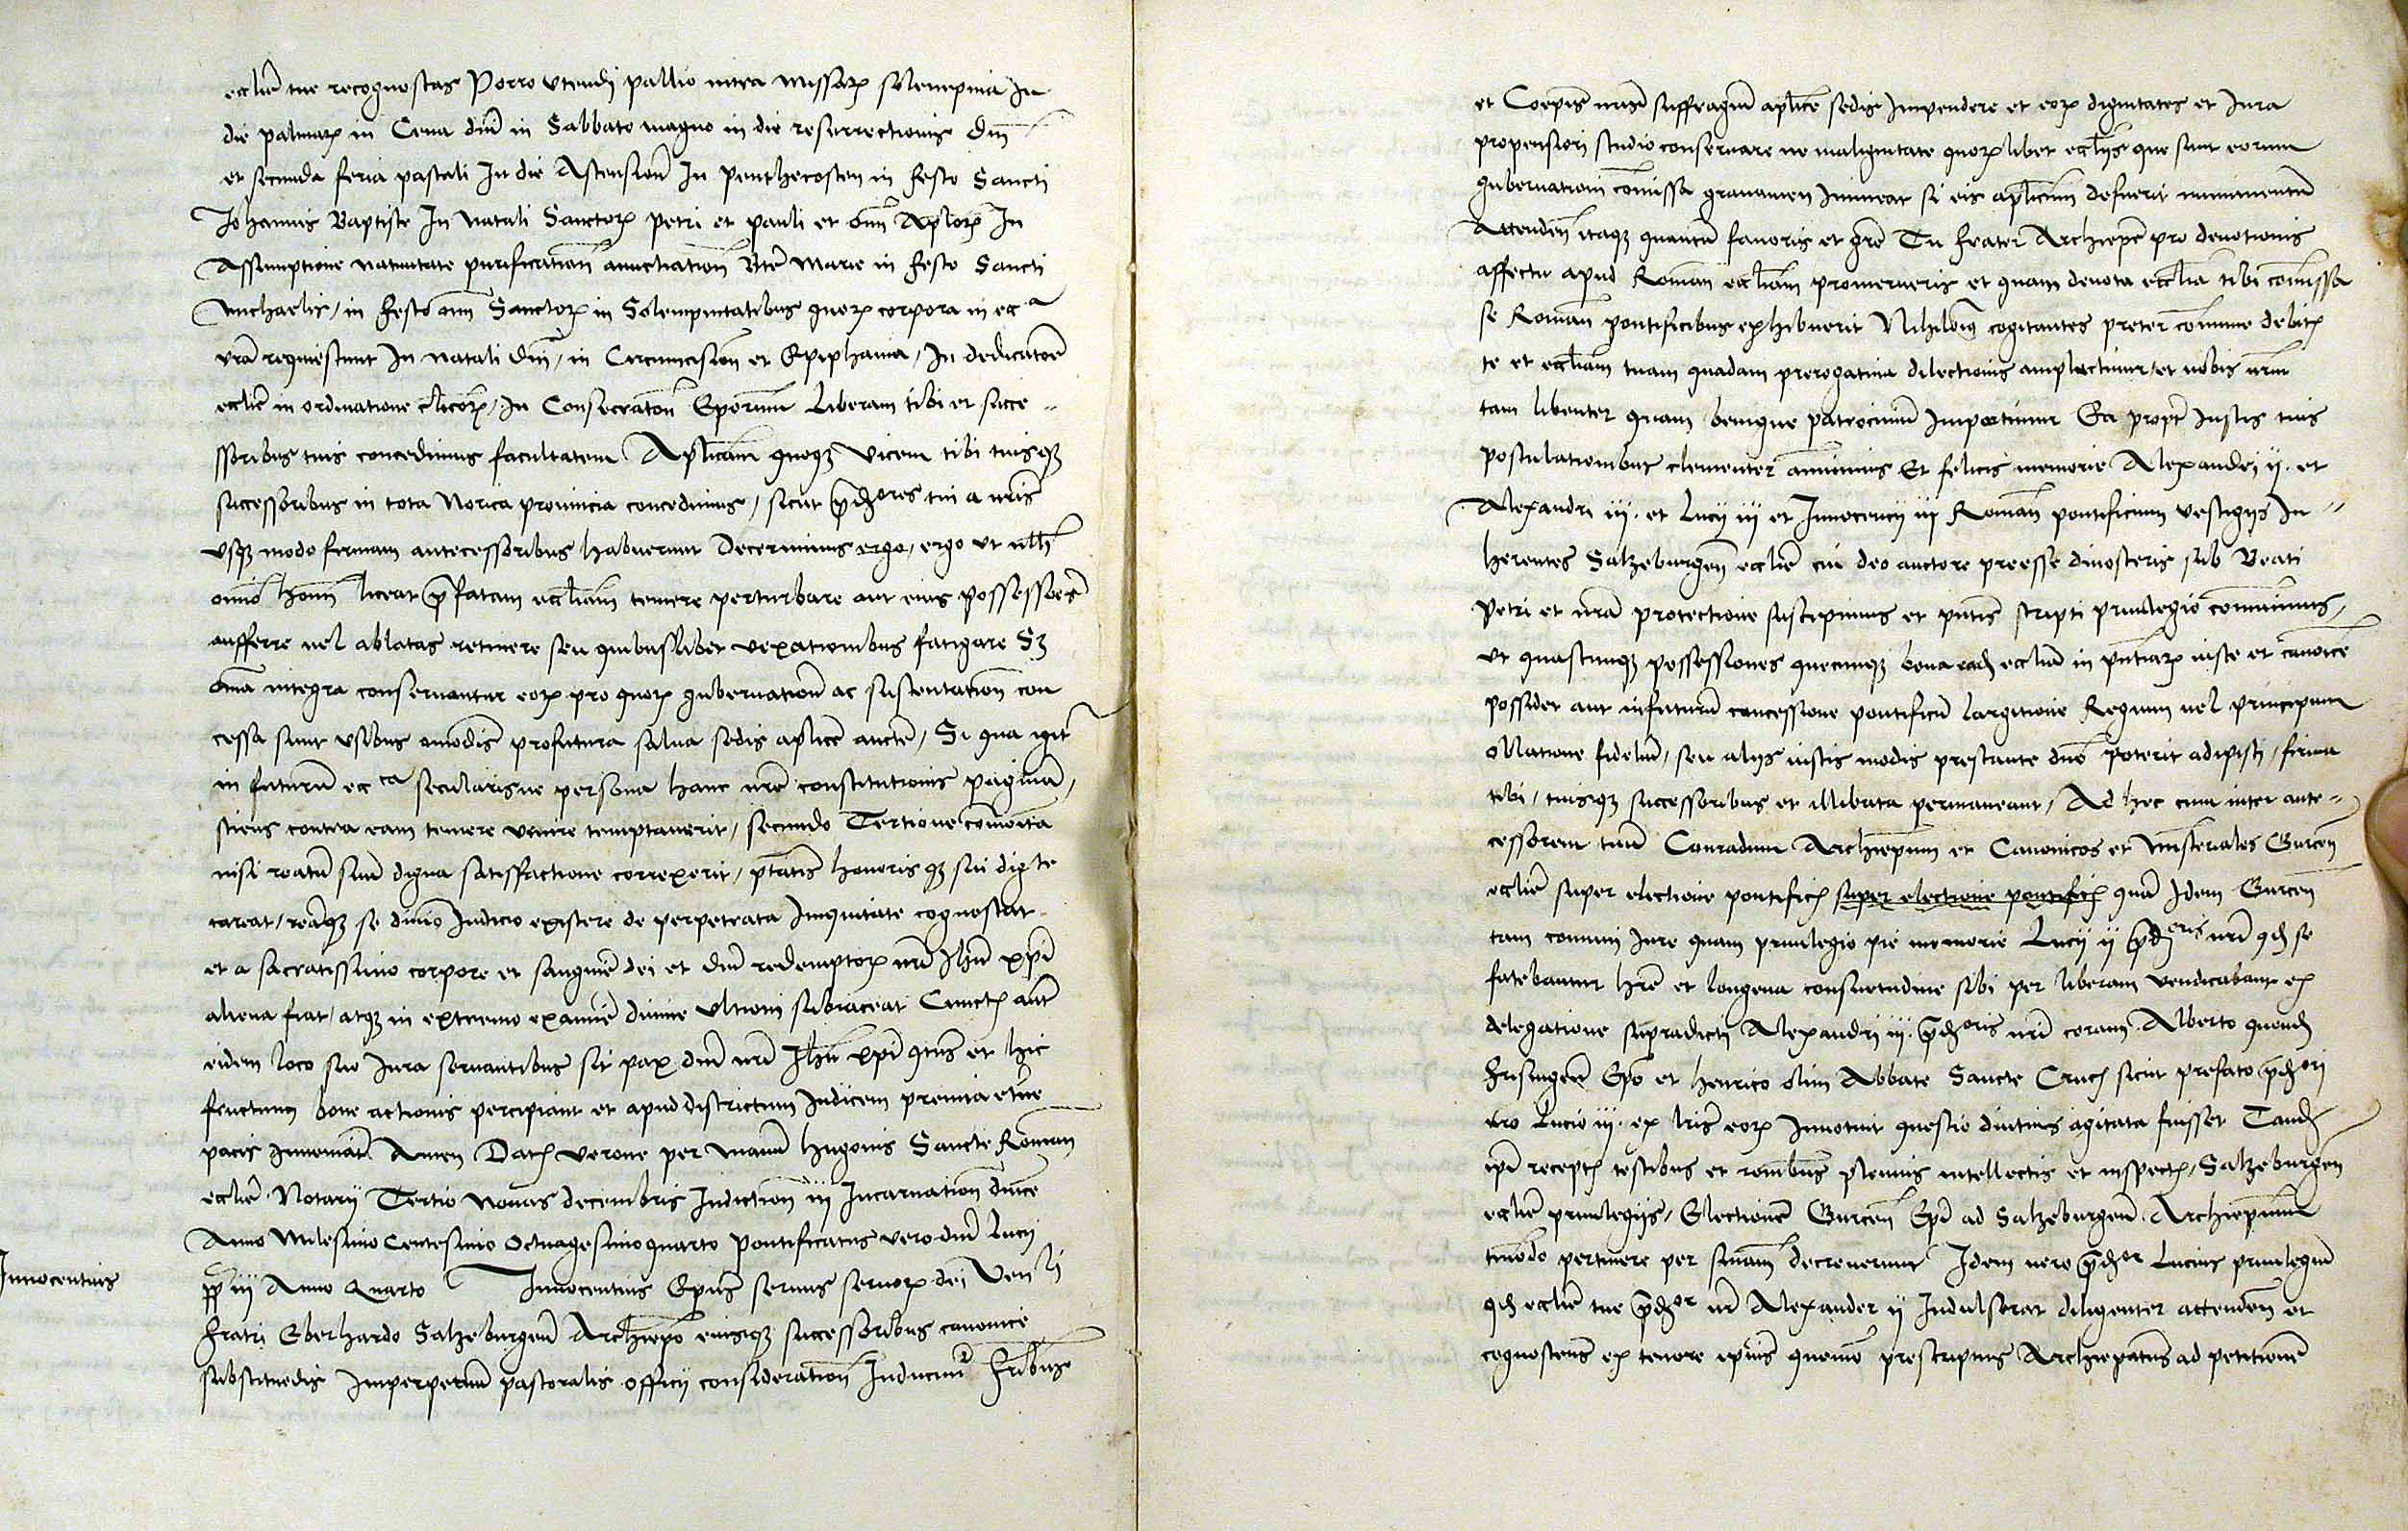 ecclie͂ tue recognoscas Porro utendi pallio intra missarꝫ solempnia In
die palmarꝫ in Cena dm̄ in Sabbato magno in die resurrectionis Dm̄
et secunda feria pascali In die Ascension̄ In penthecosten in festo Sancti
Johannis Baptiste In natali Sanctorꝫ petri et pauli et om̄ Aplorꝫ In
Assumptione natiuitate purification̄ annuctiation̄ Bte͂ Marie in festo Sancti
Michaelis / in festo om̄ Sanctorꝫ in Solempnitatibus quorꝫ corpora in ecᵃ
vr̄a requiescunt In natali Dm̄ / in Circumcision̄ et Epiphania / In dedicatoe͂
ecclie͂ in ordinatione cl̄icorꝫ / In Consecraton̄ Eporum Liberam tibi et succe-
ssoribus tuis concedimus facultatem Apl̄icam quoqꝫ vicem tibi tuisqꝫ
successoribus in tota Norica prouincia concedimus / sicut p̄dᵒʳᵉˢ tui a nr̄is
usqꝫ modo firmam antecessoribus habuerunt Decernimus ergo / ergo ut null̄
omīo hom̄ liceat p̄fatam eccl̄iam temere perturbare aut eius possessoēs
aufferre uel ablatas retinere seu quibuslibet vexationibus fatigare Sꝫ
om̄a integra conseruantur eorꝫ pro quorꝫ gubernation̄ ac sustentation̄ con
cessa sunt usibus om̄odis profutura salua sedis aplice͂ aucte͂ / Si qua igit͂
in futurū ecᶜᵃ secularisue persona hanc nr̄e constitutionis paginā /
sciens contra eam temere venire temptauerit / secundo Tertioue com̄onita
nisi reatū suū digna satisfactione correxerit / ptatis honorisqꝫ sui digte
careat / reāqꝫ se diuīo Iudicio existere de perpetrata Iniquitate cognoscat
et a sacratissimo corpore et sanguīe dei et dm̄ redemptorꝫ nr̄i Ihū xpī
aliena fiat / atqꝫ in extremo examīe diuine ultioni subiaceat Cunctꝫ aut͂
eidem loco suo Iura seruantibus sit pax dm̄ nr̄i Ihū xpī qtus et hic
fructum bone actionis percipiant et apud districtum Iudicem premia et͂ne
pacis Inueniāt Amen Datꝫ verone per Manū hugonis Sancte Roman̄
ecclie͂ Notarij Tertio Nonas decembris Indiction̄ iij Incarnation̄ dnice͂
Anno Milesimo Centesimo Octuagesimoquarto Pontificatus vero dm̄ Lucij
pp̄ iij Anno Quarto Innocentius Epūs seruus seruorꝫ dei Ven li
Innocentius
fratri Eberhardo Salzeburgen̄ Archiepō eiusqꝫ successoribus canonice
substituēdis Imperpetuū pastoralis officij consideration̄ Inducimur fribus
et Coepīs nr̄is suffragiū aplice͂ sedis Impendere et eorꝫ dignitates et Iura
propensiori studio conseruare ne malignitate quorꝫlibet eccl̄ijs que sunt eorum
gubernationi com̄issa grauamen Imineat si eis apl̄icum defuerit munimentū
Attenden̄ itaqꝫ quantū fauoris et gr̄e Tu frater Archiepē pro deuotionis
affectu apud Romanā eccl̄iam promerueris et quam deuota eccl̄ia tibi com̄issa
se Roman̄ pontificibus exhibuerit Nihilōiꝫ cogitantes preter com̄une debitꝫ
te et eccl̄iam tuam quadam prerogatiua dilectionis amplectimur / et uobis nr̄m
tam libenter quam benigne patrociniū Impertimur Ea propt͂ Iustis tuis
postulationibus clementer an̄uimus Et felicis memorie Alexandri ij. et
Alexandri iij. et Lucij iij et Innocencij iij Roman̄ pontificum vestigijs In-
herentes Salzeburgen̄ eccliē cui deo auctore preesse dinosceris sub Beati
Petri et nr̄a protectione suscipimus et pn̄tis scripti priuilegio com̄unimus /
ut quascunqꝫ possessiones quecunqꝫ bona eadꝫ eccl̄ia in pn̄tiarꝫ iuste et canoīce
possidet aut infuturū concessione pontificū largitione Regum uel principum
ollatione fideliū / seu alijs iustis modis prestante dn̄o poterit adipisci / firma
tibi / tuisqꝫ successoribus et illibata permaneant / Ad hec cum inter ante-
cessorem tuū Conradum Archiepm̄ et Canonicos et Mīsteriales Gurcen̄
ecclie͂ super electione pontificꝫ super electione pontificꝫ quā Idem Gurcen̄
tam comuni Iure quam priuilegio pie memorie Lucij ij p̄dᵒʳⁱˢ nr̄i qd se
fatebantur hr̄e et longeua consuetudine sibi per liberam vendicabant ex
delegatione supradicti Alexandri iij. p̄dᵒʳⁱˢ nr̄i coram Alberto quondꝫ
Frisingen̄ Epō et henrico olim Abbate Sancte Crucꝫ sicut prefato p̄dᵒʳⁱ
nr̄o Lucio iij. ex lr̄is eorꝫ Innotuit questio diutius agitata fuisset Tandꝫ
ip̄i receptꝫ testibus et ronibus plenius intellectis et inspectꝫ / Salzeburgen̄
ecclie͂ priuilegijs / Electione͂ Gurcen̄ Epī ad Salzeburgen̄ Archiepm̄
tm̄odo pertinere per sniam decreuerunt Idem uero p̄dᵒʳ Lucius priuilegiū
qd ecclie͂ tue p̄dᵒʳ nr̄ Alexander ij Indulserat diligenter attenden̄ et
cognoscens ex tenore ip̄ius quomō prescriptus Archiepatus ad petitione͂